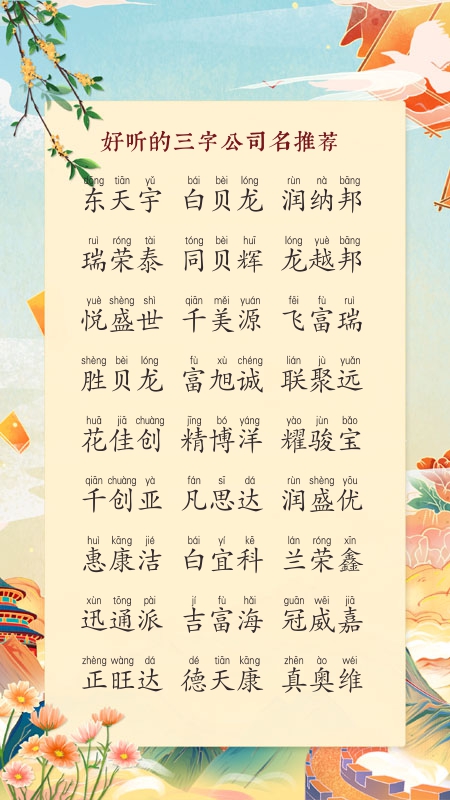 好听的三字公司名推荐
dōng tiān yǔ bái bèi lóng rùn nà bāng
东天宇 白贝龙 润纳邦
ruì róng tài tóng bèi huī lóng yuè bāng
瑞荣泰 同贝辉 龙越邦
yuè shèng shì qiān měi yuán fēi fù ruì
悦盛世 千美源 飞富瑞
shèng bèi lóng fù xù chéng lián jù yuǎn
胜贝龙 富旭诚 联聚远
huā jiā chuàng jīng bó yáng yào jùn bǎo
花佳创 精博洋 耀骏宝
qiān chuàng yà fán sī dá rùn shèng yōu
千创亚 凡思达 润盛优
huì kāng jié bái yí kē lán róng xīn
惠康洁 白宜科 兰荣鑫
xùn tōng pài jí fù hǎi guān wēi jiā
迅通派 吉富海 冠威嘉
zhèng wàng dá dé tiān kāng zhēn ào wéi
正旺达 德天康 真奥维